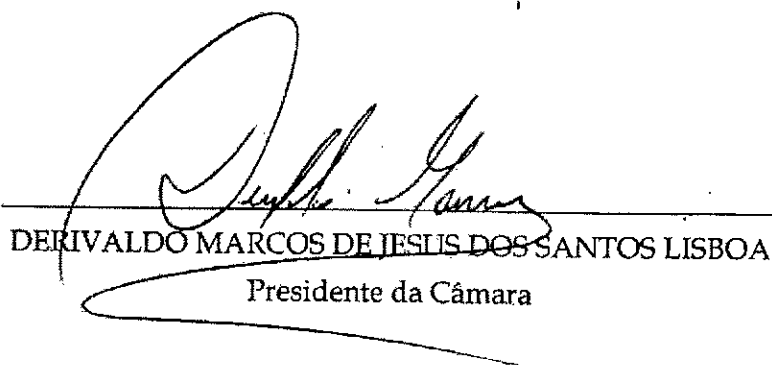 DERIVALDO MARCOS DE JESUS DOS SANTOS LISBOA
Presidente da Câmara